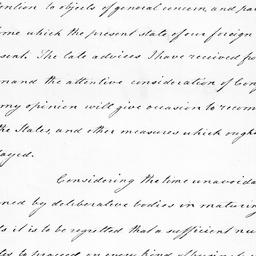 ention to objects of general concern, and par
ome which the present state of our foreign
sent. The late advices I have received fro
mand the attentive consideration of Cong
my opinion will give occasion to recom
the States, and other measures which ought
layed.
Considering the time unavoida
ned by deliberative bodies in maturing
ls it is to be regretted that a sufficient nu
tes to proceed on every kind of business